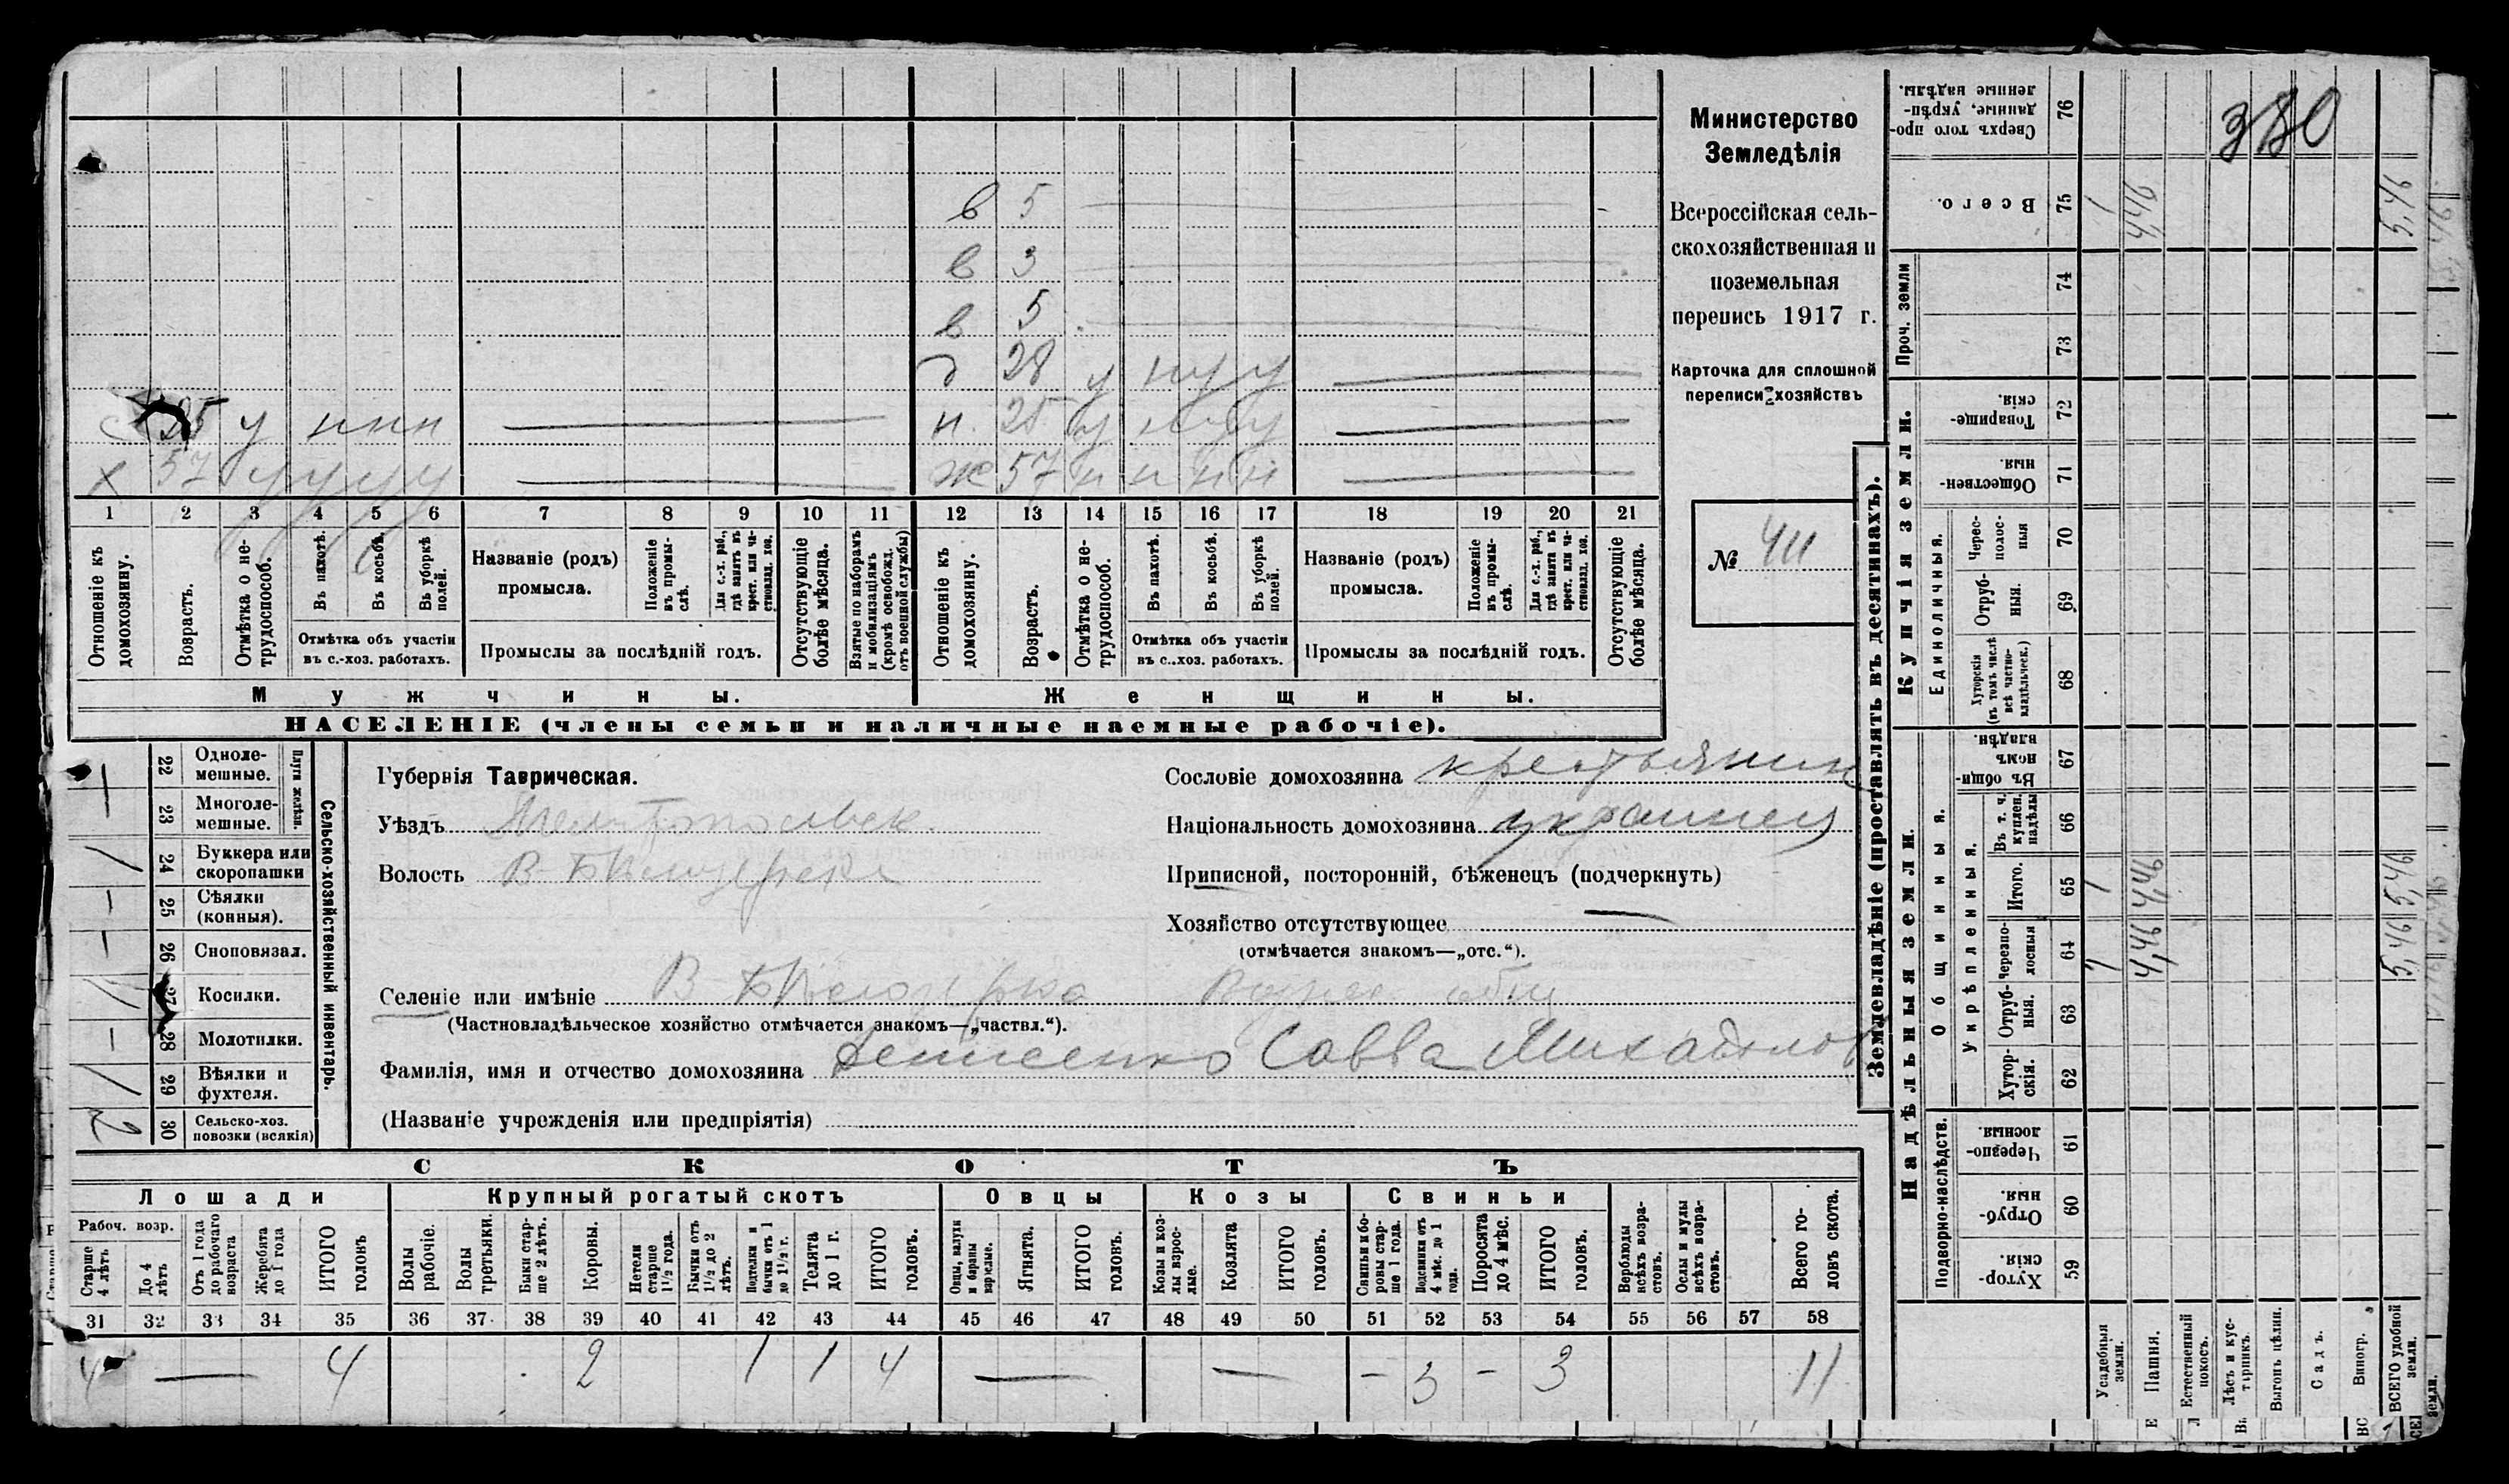 в 5
в 3
в 5
д 28 у н у у
с 25 у н н н
н. 25 у н у у
х 57 у у у у
ж 57 н н н н
1 2 3 4 5 6 7 8 9 10 11 12 13 14 15 16 17 18 19 20 21
Отношеніе къ домохозяину.
Возрастъ.
Отмѣтка о не-трудоспособ.
Въ пахотѣ.
Въ косьбѣ.
Въ уборкѣ полей.
Отмѣтка объ участіи въ с.-хоз. работахъ.
Названіе (родъ) промысла.
Положеніе въ промы-слѣ.
Для с.-х. раб., гдѣ занятъ въ крест. или ча-стновлад. хоз.
Промыслы за послѣдній годъ.
Отсутствующіе болѣе мѣсяца.
Взятые по наборамъ и мобилизаціямъ (кромѣ освобожд. отъ военной службы)
Отношеніе къ домохозяину.
Возрастъ.
Отмѣтка о не-трудоспособ.
Въ пахотѣ.
Въ косьбѣ.
Въ уборкѣ полей.
Отмѣтка объ участіи въ с.-хоз. работахъ.
Названіе (родъ) промысла.
Положеніе въ промы-слѣ.
Для с.-х. раб., гдѣ занятъ въ крест. или ча-стновлад. хоз.
Промыслы за послѣдній годъ.
Отсутствующіе болѣе мѣсяца.
Мужчины.
Женщины.
НАСЕЛЕНІЕ (члены семьи и наличные наемные рабочіе).
Министерство
Земледѣлія
Всероссійская сель-
скохозяйственная и
поземельная
перепись 1917 г.
Карточка для сплошной
переписи хозяйствъ
№ 411
22 Одноле-мешные.
23 Многоле-мешные.
Плуги желѣзн.
24 Буккера или скоропашки /
25 Сѣялки (конныя). —
26 Сноповязал. —
27 Косилки. /
28 Молотилки. —
29 Вѣялки и фухтеля. /
30 Сельско-хоз. повозки (всякія) 2
Сельско-хозяйственный инвентарь.
Губернія Таврическая.
Уѣздъ Мелитопольск.
Волость В-Бѣлозерская
Селеніе или имѣніе В-Бѣлозерка
(Частновладѣльческое хозяйство отмѣчается знакомъ—„частвл.“).
Фамилія, имя и отчество домохозяина Денисенко Савва Михайлов
(Названіе учрежденія или предпріятія)
Сословіе домохозяина крестьянин
Національность домохозяина украинец
Приписной, посторонній, бѣженецъ (подчеркнуть)
Хозяйство отсутствующее —
(отмѣчается знакомъ—„отс.“).
СКОТЪ
Лошади
Крупный рогатый скотъ
Овцы
Козы
Свиньи
Рабоч. возр.
Старше 4 лѣтъ
До 4 лѣтъ
Отъ 1 года до рабочаго возраста
Жеребята до 1 года
ИТОГО головъ
Волы рабочіе.
Волы третьяки.
Быки стар-ше 2 лѣтъ.
Коровы.
Нетели старше 1½ года.
Бычки отъ 1½ до 2 лѣтъ.
Подтелки и бычки отъ 1 до 1½ г.
Телята до 1 г.
ИТОГО головъ.
Овцы, валухи и бараны взрослые.
Ягнята.
ИТОГО головъ.
Козы и коз-лы взрос-лые.
Козлята
ИТОГО головъ.
Свиньи и бо-ровы стар-ше 1 года.
Подсвинки отъ 4 мѣс. до 1 года.
Поросята до 4 мѣс.
ИТОГО головъ.
Верблюды всѣхъ возра-стовъ.
Ослы и мулы всѣхъ возра-стовъ.
Всего го-ловъ скота.
31 32 33 34 35 36 37 38 39 40 41 42 43 44 45 46 47 48 49 50 51 52 53 54 55 56 57 58
4 — 4 2 1 1 4 — — - 3 - 3 11
Землевладѣніе (проставлять въ десятинахъ).
Надѣльныя земли.
Купчія земли.
Проч. земли
Сверхъ того про-данные, укрѣп-ленные надѣлы. 76
Всего. 75
74
73
Товарище-скія. 72
Обществен-ныя. 71
Единоличныя.
Черес-полос-ныя 70
Отруб-ныя. 69
Хуторскія (въ томъ числѣ всѣ частно-владѣльческ.) 68
Общинныя.
Въ общин-номъ владѣн. 67
Укрѣпленныя.
Въ т. ч. куплен. надѣлы 66
Итого. 65
Черезпо-лосныя 64
Отруб-ныя. 63
Хутор-скія. 62
Подворно-наслѣдств.
Черезпо-лосныя. 61
Отруб-ныя. 60
Хутор-скія. 59
Усадебныя земли. 1 1 1
Пашня. 4,46 4,46 4,46
Естественный покосъ.
Лѣсъ и кус-тарникъ.
Выгонъ цѣлин.
Садъ.
Виногр.
ВСЕГО удобной земли. 5,46 5,46 5,46
380